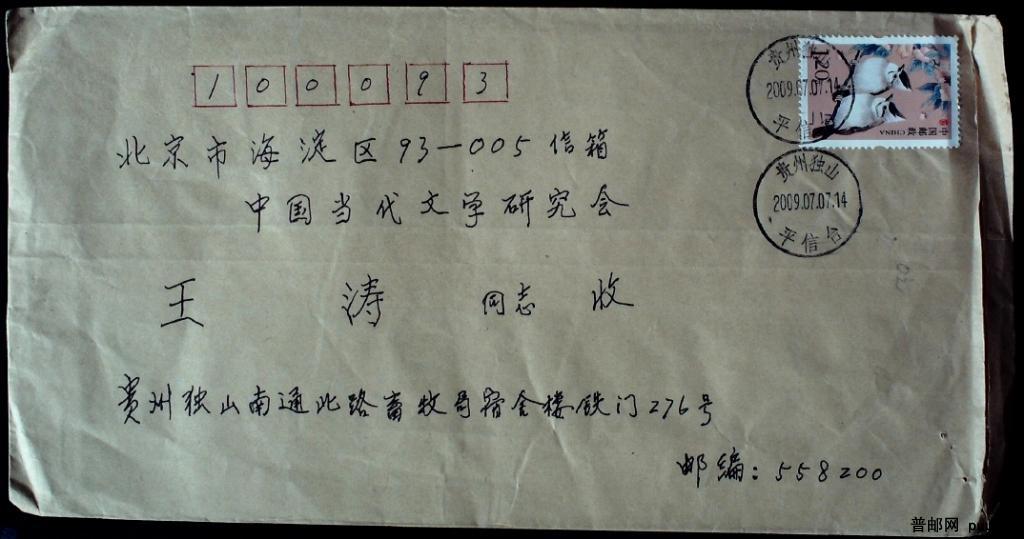 100093
贵州独山
2009.07.07.14
平信台
120
中国邮政 CHINA
北京市海淀区93-005信箱
中国当代文学研究会
贵州独山
2009.07.07.14
平信台
王 涛 同志 收
贵州独山南通北路畜牧哥宿舍楼铁门276号
邮编:558200
普邮网